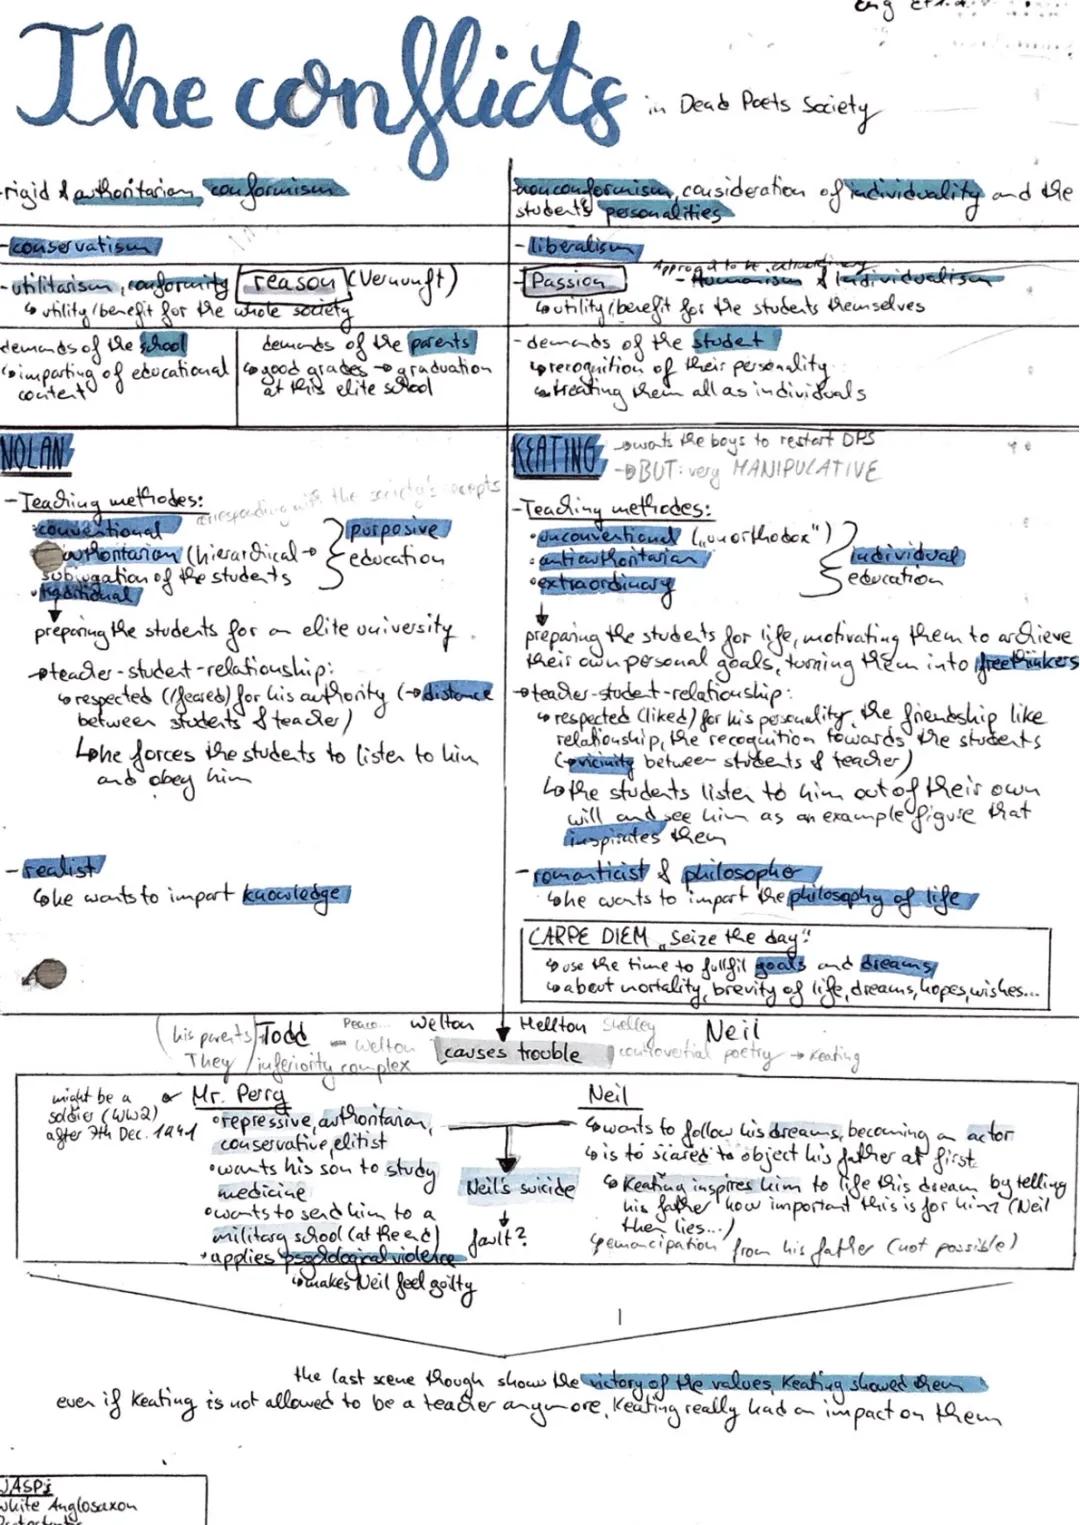 The conflicts in Dead Poets Society
-rigid & authoritarian conformism
nonconformism, consideration of individuality and the
students personalities
-conservatism
-liberalism
-utilitarism, conformity reason (Vernunft)
↳ utility/benefit for the whole society
Approach to be extraordinary
- Passion - Humanism & Individualism
↳ utility/benefit for the students themselves
demands of the school
↳ imparting of educational
content
demands of the parents
↳ good grades → graduation
at this elite school
- demands of the student
↳ recognition of their personality
↳ treating them all as individuals
NOLAN
-Teaching methodes:
corresponding with the society's concepts
•conventional
•authoritarian (hierarchical →
subjugation of the students
•traditional
purposive
education
preparing the students for an elite university.
→teacher-student-relationship:
↳ respected (feared) for his authority (→distance
between students & teacher)
↳he forces the students to listen to him
and obey him
-realist
↳he wants to impart knowledge
KEATING →wants the boys to restart DPS
→BUT: very MANIPULATIVE
-Teaching methodes:
•unconventional („unorthodox")
•antiauthoritarian
•extraordinary
individual
education
preparing the students for life, motivating them to archieve
their own personal goals, turning them into freethinkers
→teacher-student-relationship:
↳ respected (liked) for his personality, the friendship like
relationship, the recognition towards the students
(→vicinity between students & teacher)
↳the students listen to him out of their own
will and see him as an example figure that
inspirates them
-romanticist & philosopher
↳he wants to impart the philosophy of life
CARPE DIEM „Seize the day"
↳use the time to fullfil goals and dreams
↳about mortality, brevity of life, dreams, hopes, wishes...
(his parents) Todd Welton Hellton Shelley Neil
They / inferiority complex Welton causes trouble controvertial poetry → Keating
might be a
soldier (WW2)
after 7th Dec. 1941
Mr. Perry
•repressive, authoritarian,
conservative, elitist
•wants his son to study
medicine
•wants to send him to a
military school (at the end)
•applies psychological violence
↳makes Neil feel guilty
Neil's suicide
fault?
Neil
↳wants to follow his dreams, becoming an actor
↳is to scared to object his father at first
↳ Keating inspires him to life this dream by telling
his father how important this is for him? (Neil
then lies...)
↳emancipation from his father (not possible)
the last scene though shows the victory of the values, Keating showed them
even if Keating is not allowed to be a teacher anymore, Keating really had an impact on them
WASPs
White Anglosaxon